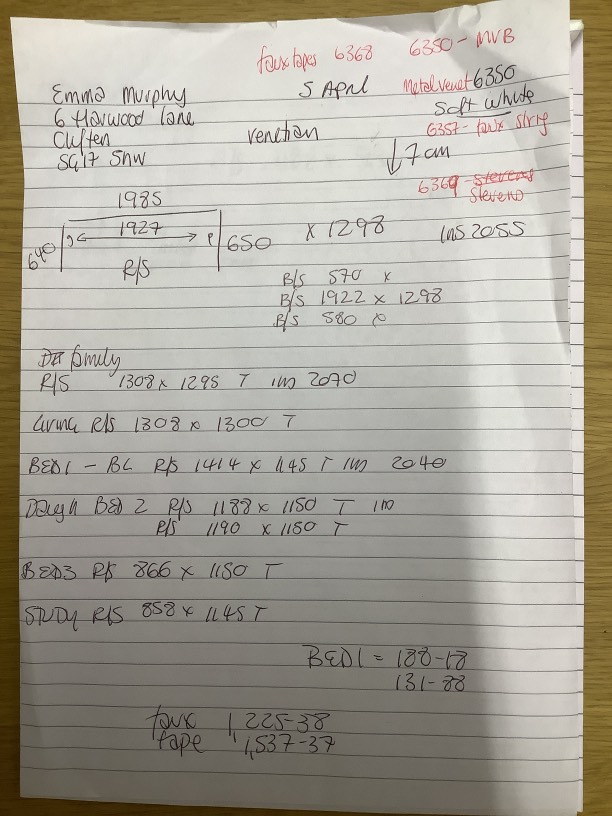 faux tapes 6368 6350 - MVB
Emma Murphy 5 April Metal venet 6350
6 Harwood Lane Soft White
Cliften venetian 6357 - faux string
SG17 5NW ↓ 7cm
6369 - Stevens
Stevens
1985
640 1927 650 x 1298 ins 2055
R/S
B/S 570 x
B/S 1922 x 1298
B/S 580 x
family
R/S 1308 x 1295 T ins 2070
R/S 1308 x 1300 T
BED1 - BL R/S 1414 x 1145 T ins 2040
BED 2 R/S 1188 x 1150 T
R/S 1190 x 1150 T
BED3 R/S 866 x 1150 T
STUDY R/S 858 x 1145 T
BED1 = 188-18
131-88
faux 1,225-38
tape 1,537-37